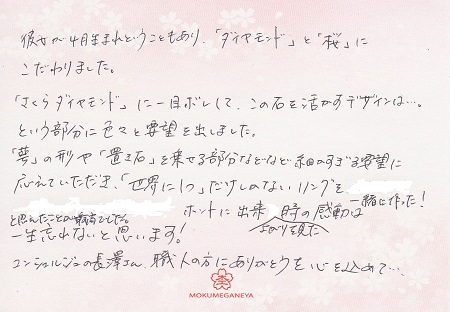 彼女が4月生まれということもあり、「ダイヤモンド」と「桜」に
こだわりました。
「さくらダイヤモンド」に一目ボレして、この石を活かすデザインは…。
という部分に色々と要望を出しました。
「萼」の形や「置き石」を乗せる部分などなど細かすぎる要望に
応えていただき、「世界に1つ」だけしかない リングを
一緒に作った!
と思えたことが最高でした。
ホントに出来上がりを見た時の感動は
一生忘れないと思います!
コンシェルジュの長澤さん、職人の方にありがとうを心を込めて…
MOKUMEGANEYA